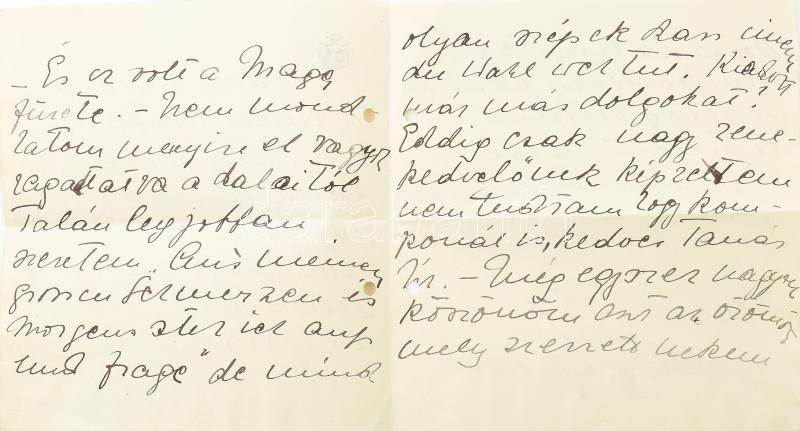 – És ez volt a Maga
füzete. – Nem mond-
hatom menyire el vagyok
ragadtatva a dalaitól
Talán legjobban
szeretem „Aus meinen
grossen Schmerzen és
Morgens steh ich auf
und frage" de mind
olyan szép
den
már más dolgokat?
Eddig csak nagy zene-
kedvelőnek képzeltem
nem tudtam hogy kom-
ponál is, kedves Tanár
Úr. – Még egyszer nagyon
köszönöm ezt az örömöt
mely szerzett nekem